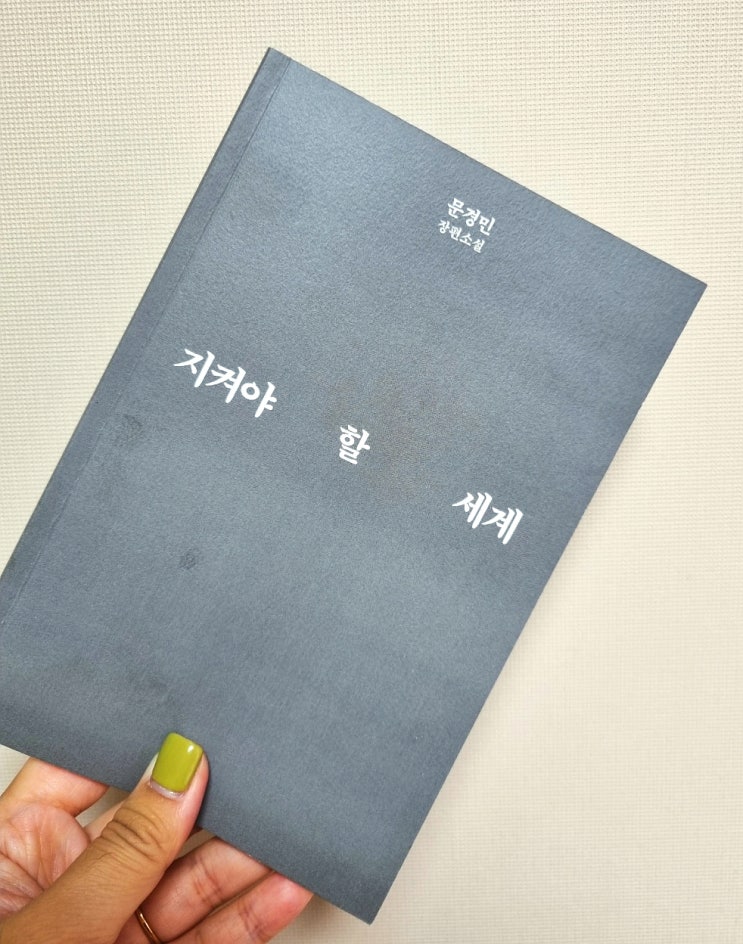 문경민
장편소설
지켜야
할
세계